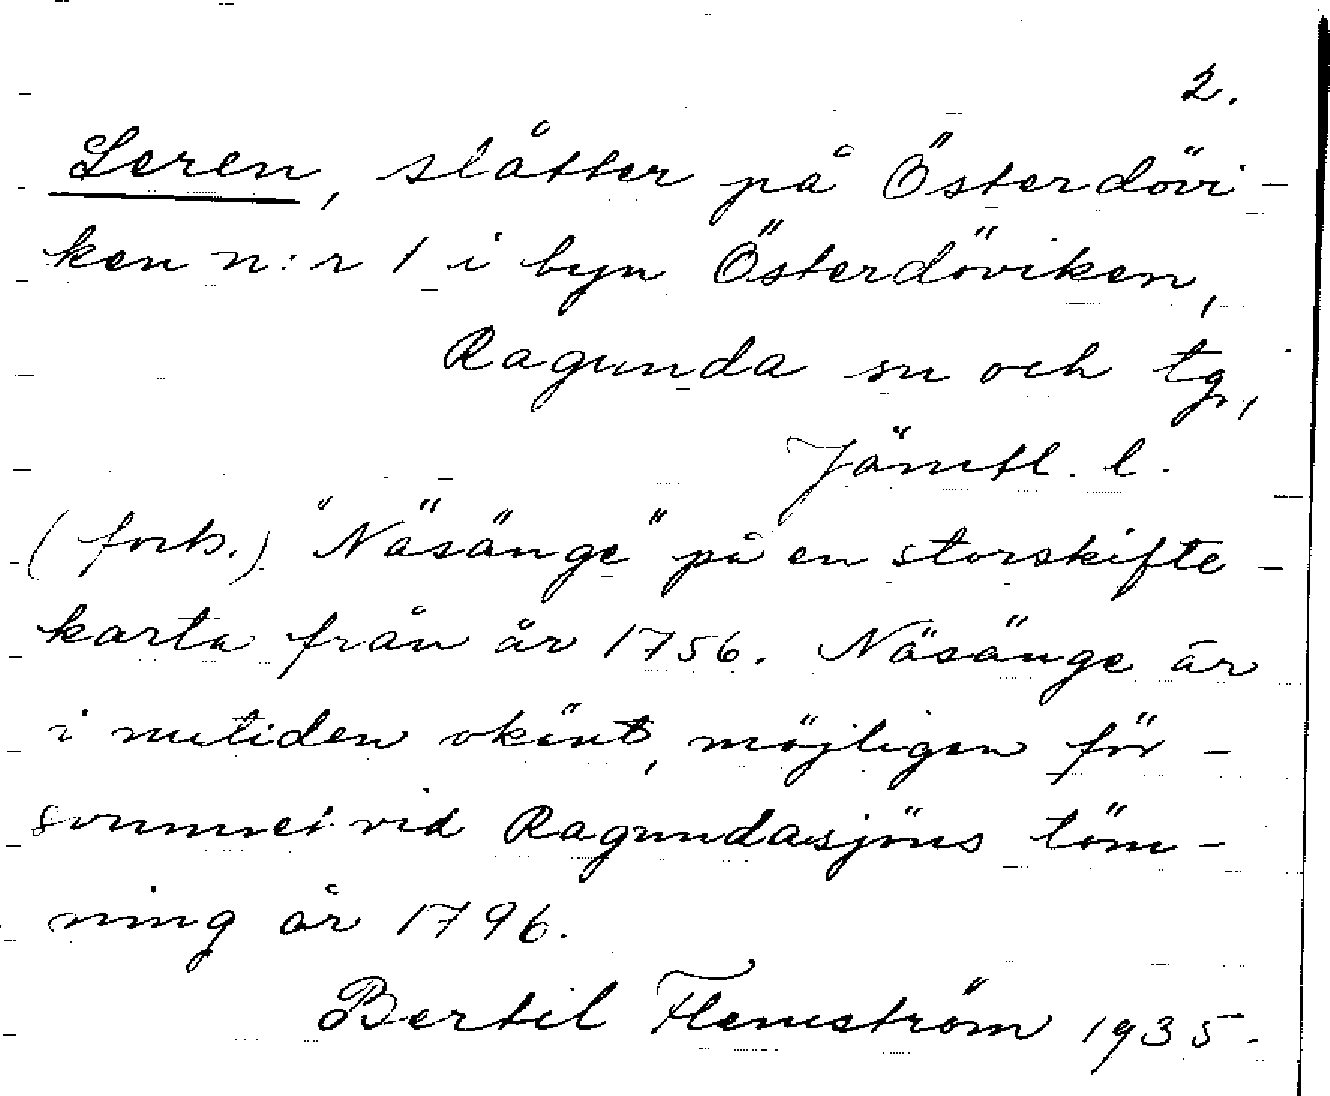 2.
Leren, slåtter på Österdövi-
ken n:r 1 i byn Österdöviken,
Ragunda sn och tg,
Jämtl. l.
(forts.) "Näsänge" på en storskifte-
karta från år 1756. Näsänge är
i nutiden okänt, möjligen för-
svunnet vid Ragundasjöns töm-
ning år 1796.
Bertil Flemström 1935.